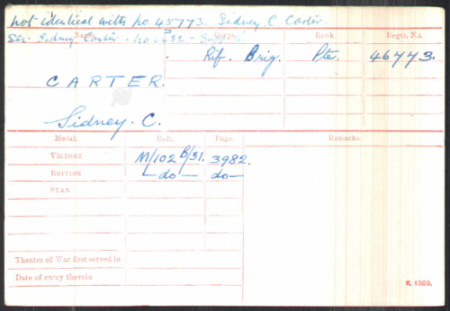 not identical with no 45773. Sidney C Carter
Sidney Carter
Name. Corps. Rank Regtl. No.
Rif. Brig. Pte. 46773.
CARTER.
Sidney. C.
Medal. Roll. Page. Remarks.
VICTORY M/102 B/31. 3982.
BRITISH —do— do—
STAR
Theatre of War first served in
Date of entry therein
K. 1380.